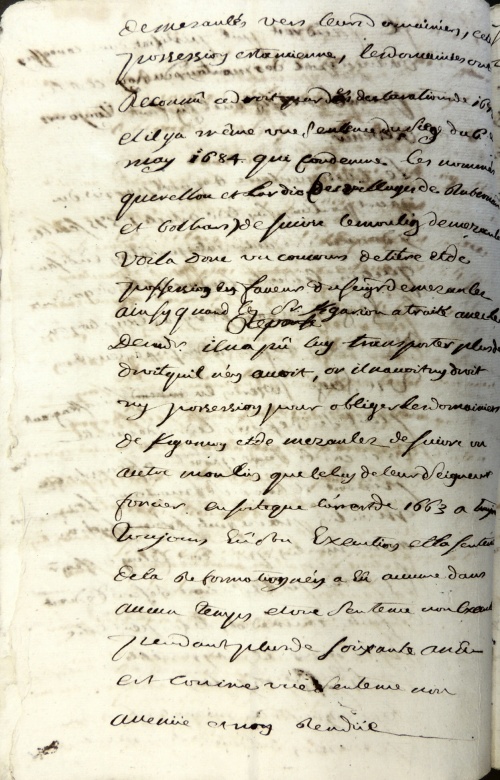 de mezaulés vers leurs domainiers, cette
possession est ancienne, les domainiers ont
Reconnu ce droit par des declarations de 16
et il y a même une sentence du siege du 6
may 1684 qui condemne les nommés
querellou et Lardic des villages de
et de suivre le moulin de mezaulés
Voila donc un concours de titre et de
possession en faveur du seigr de mezaulés
ainsy quand le Sr Kgariou a traité avec le
Deffunt
Dems. il n'a pû luy transporter plus de
droit qu'il n'en avoit, or il n'avoit ny droit
ny possession pour obliger les domainiers
de Kgariou et de mezaulés de suivre un
autre moulin que celuy de leur Seigneur
foncier, en sorte que l'arrest de 1663 a
Toujours Eü son Execution et la sentence
de la Reformation n'en a Eü aucune dans
aucun temps et une sentence non Executée
pendant plus de soixante ans
est comme une sentence non
avenue et non Rendüe